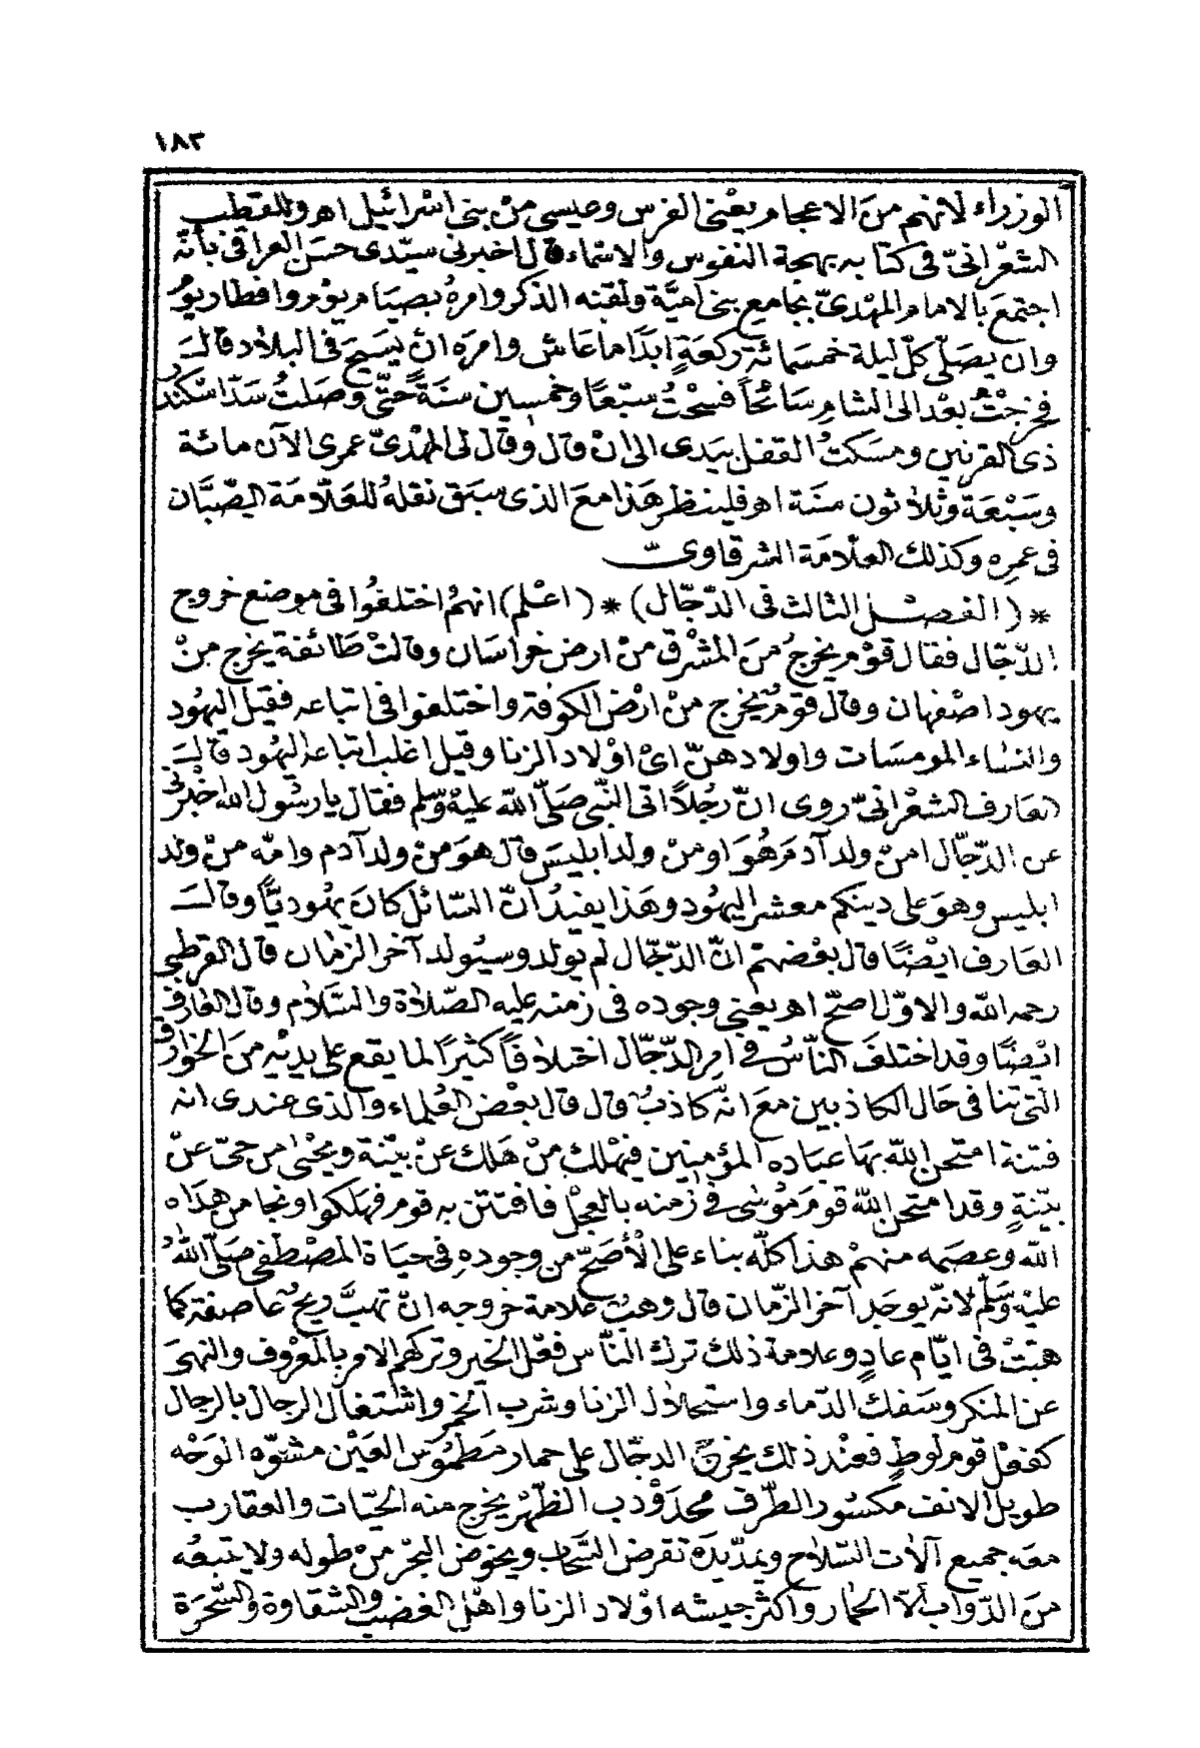 ١٨٣
الوزراء لانهم من الاعجام يعنى الفرس وعيسى من بنى اسرائيل اهـ وللقطب
الشعرانى فى كتابه بهجة النفوس والاسماء قال اخبرنى سيدى حسن العراقى بانه
اجتمع بالامام المهدى بجامع بنى امية ولقنه الذكر وامره بصيام يوم وافطار يوم
وان يصلى كل ليلة خمسمائة ركعة ابدا ما عاش وامره ان يسيح فى البلاد قال
فخرجت بعد الى الشام سائحا فسحت سبعا وخمسين سنة حتى وصلت سد اسكندر
ذى القرنين ومسكت القفل بيدى الى ان قال وقال لى المهدى عمرى الآن مائة
وسبعة وثلاثون سنة اهـ فلينظر هذا مع الذى سبق نقله للعلامة الصبان
فى عمره وكذلك العلامة الشرقاوى
* (الفصل الثالث فى الدجال) * (اعلم) انهم اختلفوا فى موضع خروج
الدجال فقال قوم يخرج من المشرق من ارض خراسان وقالت طائفة يخرج من
يهود اصفهان وقال قوم يخرج من ارض الكوفة واختلفوا فى اتباعه فقيل اليهود
والنساء المومسات واولادهن اى اولاد الزنا وقيل اغلب اتباعه اليهود قال
العارف الشعرانى روى ان رجلا اتى النبى صلى الله عليه وسلم فقال يا رسول الله اخبرنى
عن الدجال امن ولد آدم هو او من ولد ابليس قال هو من ولد آدم وامه من ولد
ابليس وهو على دينكم معشر اليهود وهذا يفيد ان السائل كان يهوديا وقال
العارف ايضا قال بعضهم ان الدجال لم يولد وسيولد آخر الزمان قال القرطبى
رحمه الله والاول اصح اهـ يعنى وجوده فى زمنه عليه الصلاة والسلام وقال العارف
ايضا وقد اختلف الناس فى امر الدجال اختلافا كثيرا لما يقع على يديه من الخوارق
التى تنافى حال الكاذبين مع انه كاذب قال قال بعض العلماء والذى عندى انه
فتنة امتحن الله بها عباده المؤمنين فيهلك من هلك عن بينة ويحيى من حى عن
بينة وقد امتحن الله قوم موسى فى زمنه بالعجل فافتتن به قوم فهلكوا ونجا من هداه
الله وعصمه منهم هذا كله بناء على الأصح من وجوده فى حياة المصطفى صلى الله
عليه وسلم لانه يوجد آخر الزمان قال وهب علامة خروجه ان تهب ريح عاصفة كما
هبت فى ايام عاد وعلامة ذلك ترك الناس فعل الخير وتركهم الامر بالمعروف والنهى
عن المنكر وسفك الدماء واستحلال الزنا وشرب الخمر واشتغال الرجال بالرجال
كفعل قوم لوط فعند ذلك يخرج الدجال على حمار مطموس العين مشوه الوجه
طويل الانف مكسور الطرف محدودب الظهر يخرج منه الحيات والعقارب
معه جميع آلات السلاح ويمد يده تقرض السحاب ويخوض البحر من طوله ولا يتبعه
من الدواب الا الحمار واكثر جيشه اولاد الزنا واهل الغضب والشقاوة والسحرة